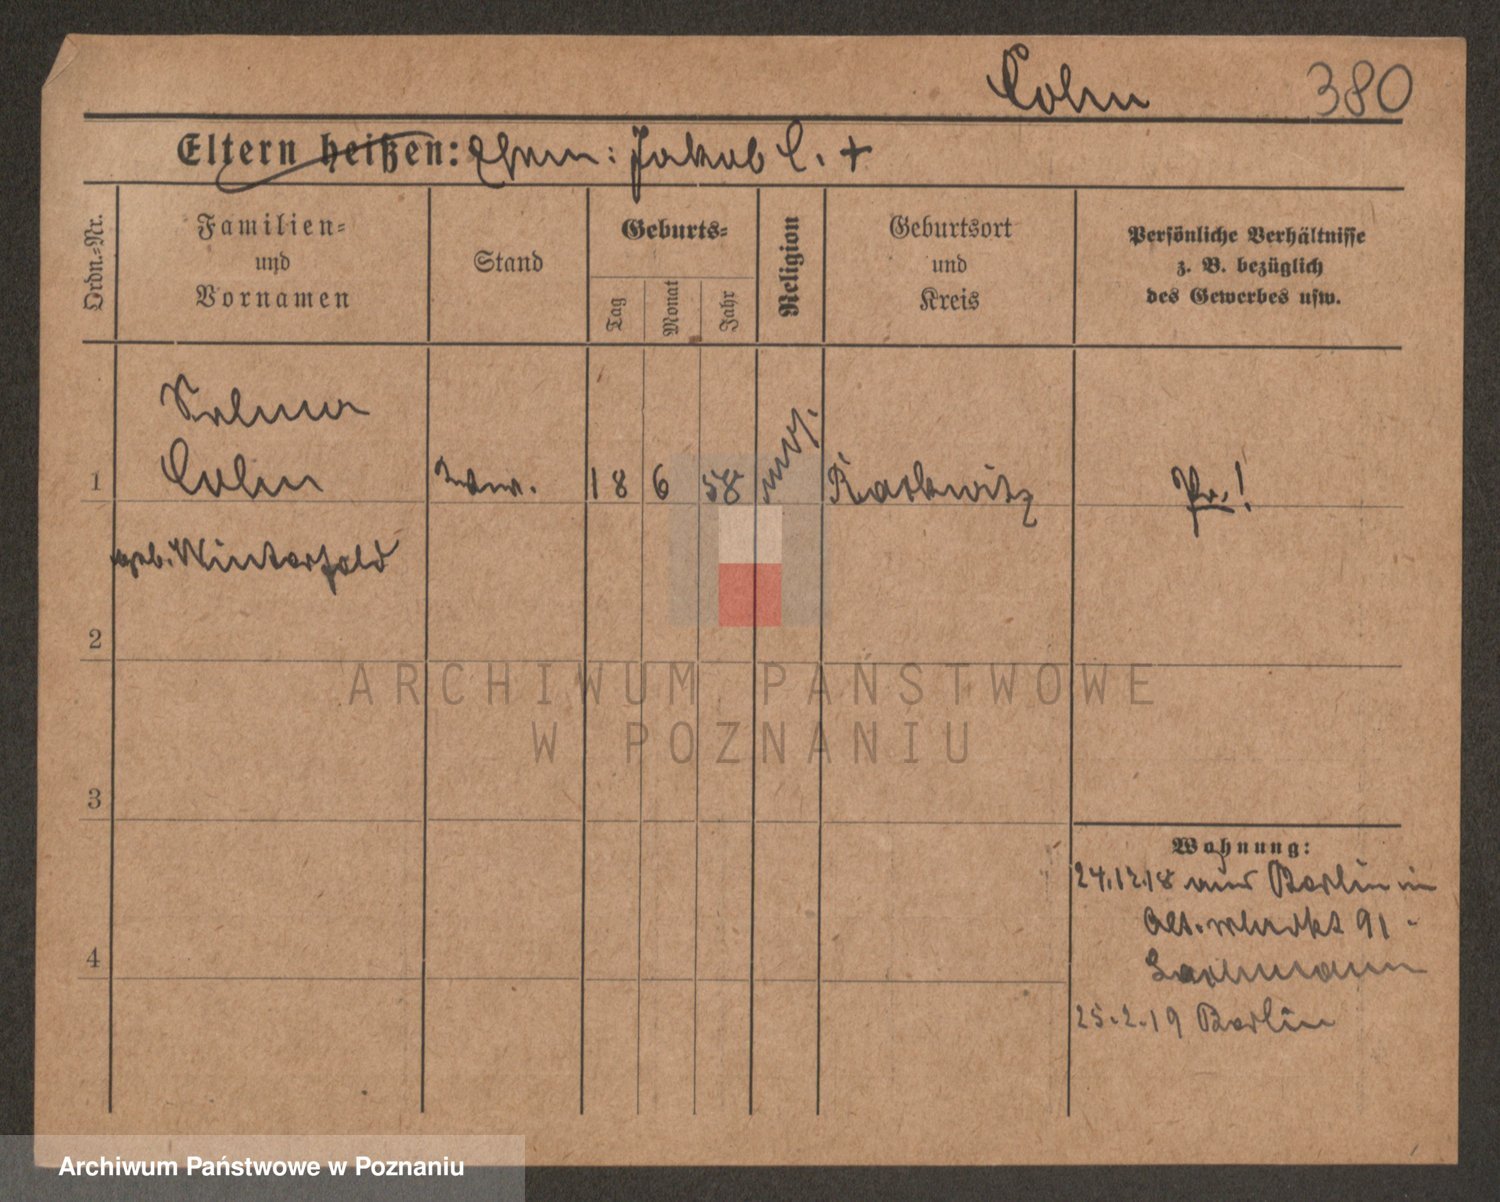 Cohn 380
Eltern heißen: Ehem: Jakob C. +
Ordn.-Nr.
Familien-
und
Vornamen
Stand
Geburts-
Tag
Monat
Jahr
Religion
Geburtsort
und
Kreis
Persönliche Verhältnisse
z. B. bezüglich
des Gewerbes usw.
Selma
1 Cohn Wwe. 18 6 58 mos. Rackwitz Pr.!
geb. Winterfeld
2
ARCHIWUM PAŃSTWOWE
W POZNANIU
3
Wohnung:
24.12.18 aus Berlin in
Alt. Markt 91 -
4
25.2.19 Berlin
Archiwum Państwowe w Poznaniu